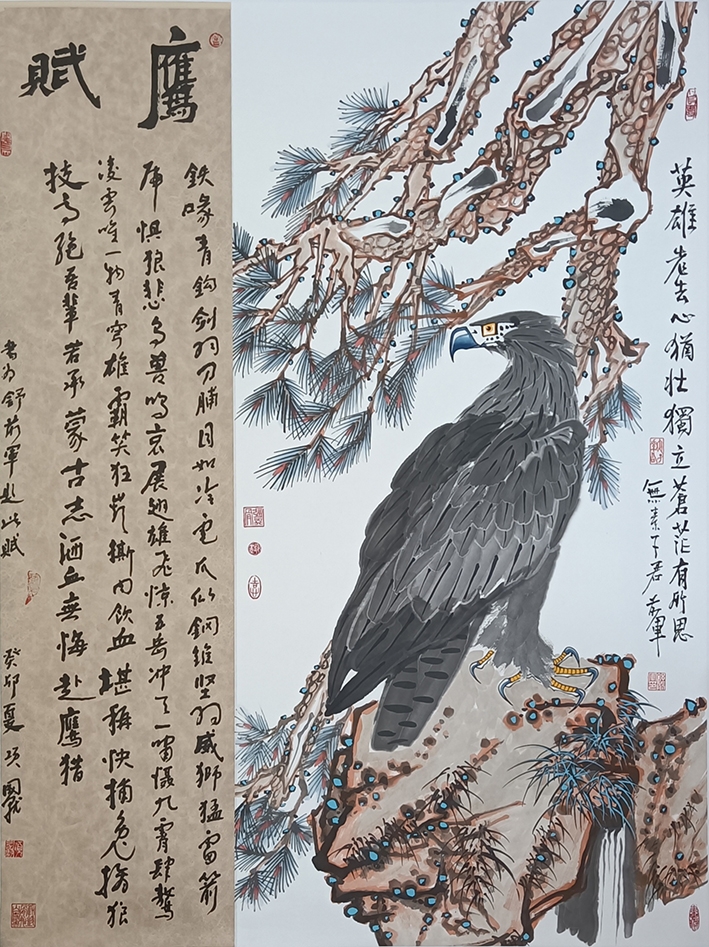 鷹賦
鉄喙青鈎剑羽刀脯目如冷電爪似鋼錐坚羽威獅猛雷箭
虎惧狼悲鸟兽鸣哀展翅雄飞惊五岳冲天一啸慑九霄肆驁
凌雲唯一物青穹雄霸笑狂撕肉飲血堪稱快捕兔擒狼
技高絶吾輩若承蒙古志洒血無悔赴鷹猎
書为舒前軍題此賦
癸卯夏項國
英雄老去心猶壯獨立蒼茫有所思
無素下君前軍